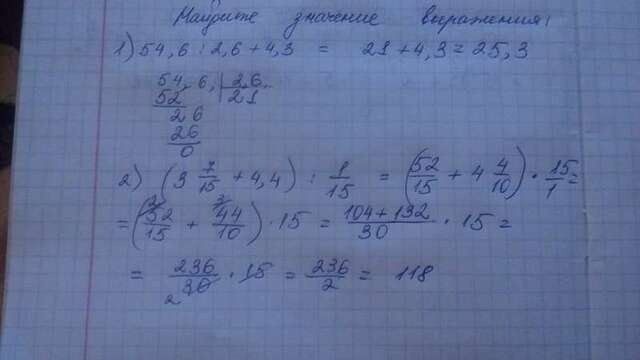 Найдите значение выражения:
1) 54,6 : 2,6 + 4,3 = 21 + 4,3 = 25,3
54,6, | 2,6,
52 21
26
26
0
2) (3 7/15 + 4,4) : 1/15 = (52/15 + 4 4/10) · 15/1 =
= (52/15 + 44/10) · 15 = 104+132/30 · 15 =
= 236/30 · 15 = 236/2 = 118